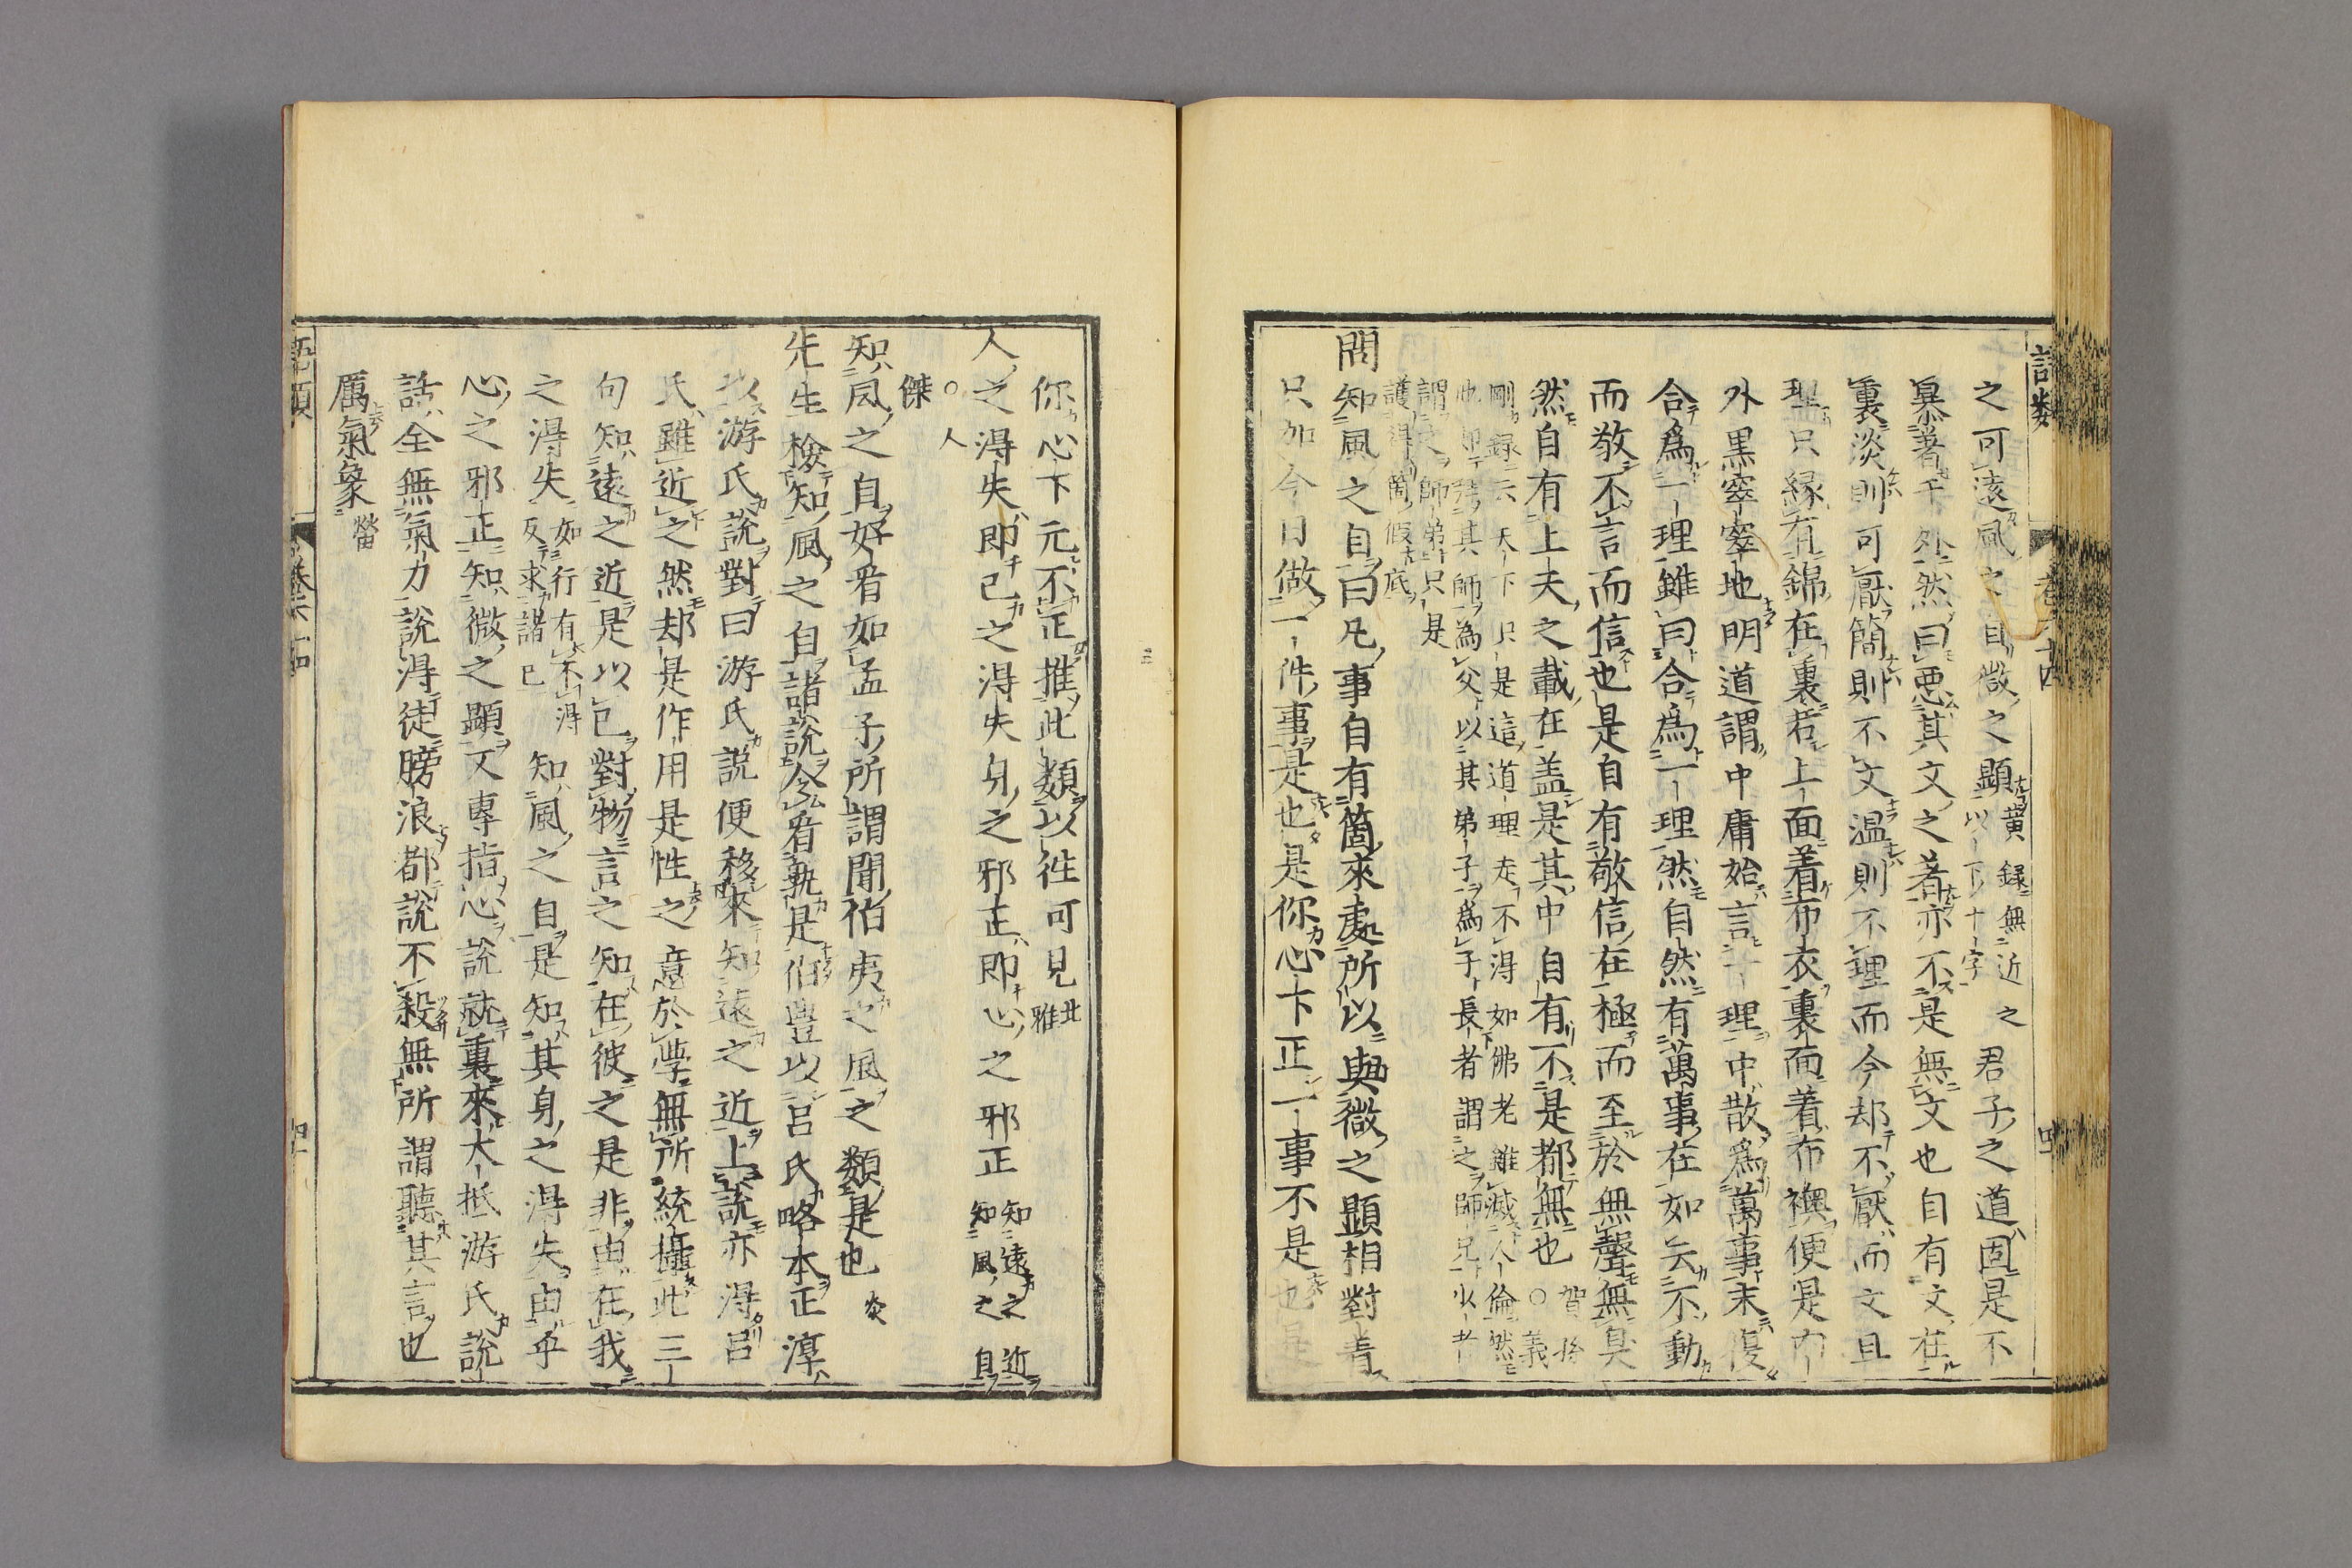 語類 卷六十四 四十
之可遠風之自微之顯黃錄無近之以下十字君子之道固是不
暴著于外然曰惡其文之著亦不是無文也自有文在
裏淡則可厭簡則不文温則不理而今却不厭而文且
理只緣有錦在裏若上面着布衣裏面着布襖便是内
外黒窣窣地明道謂中庸始言一理中散爲萬事末復
合爲一理雖曰合爲一理然自然有萬事在如云不動
而敬不言而信也是自有敬信在極而至於無聲無臭
然自有上天之載在盖是其中自有不是都無也賀孫○義
剛錄云天下只是這道理走不得如佛老雖滅人倫然
也却拜其師為父以其弟子爲子長者謂之師兄少者
謂之師弟只是
護得箇假底
問知風之自曰凡事自有箇來處所以與微之顯相對着
只如今日做一件事是也是你心下正一事不是也是
你心下元不正推此類以徃可見比雅
人之得失即己之得失身之邪正即心之邪正知遠之近知風之自
○人
傑
知風之自好看如孟子所謂聞伯夷之風之類是也炎
先生檢知風之自諸說令看孰是伯豊以呂氏略本正淳
以游氏說對曰游氏說便移來知遠之近上說亦得呂
氏雖近之然却是作用是性之意於學無所統攝此三
句知遠之近是以己對物言之知在彼之是非由在我
之得失如行有不得反求諸己知風之自是知其身之得失由乎
心之邪正知微之顯又專指心說就裏來大抵游氏說
話全無氣力說得徒膀浪都說不殺無所謂聽其言也
厲氣象㽦
語類 卷六十四 四十一